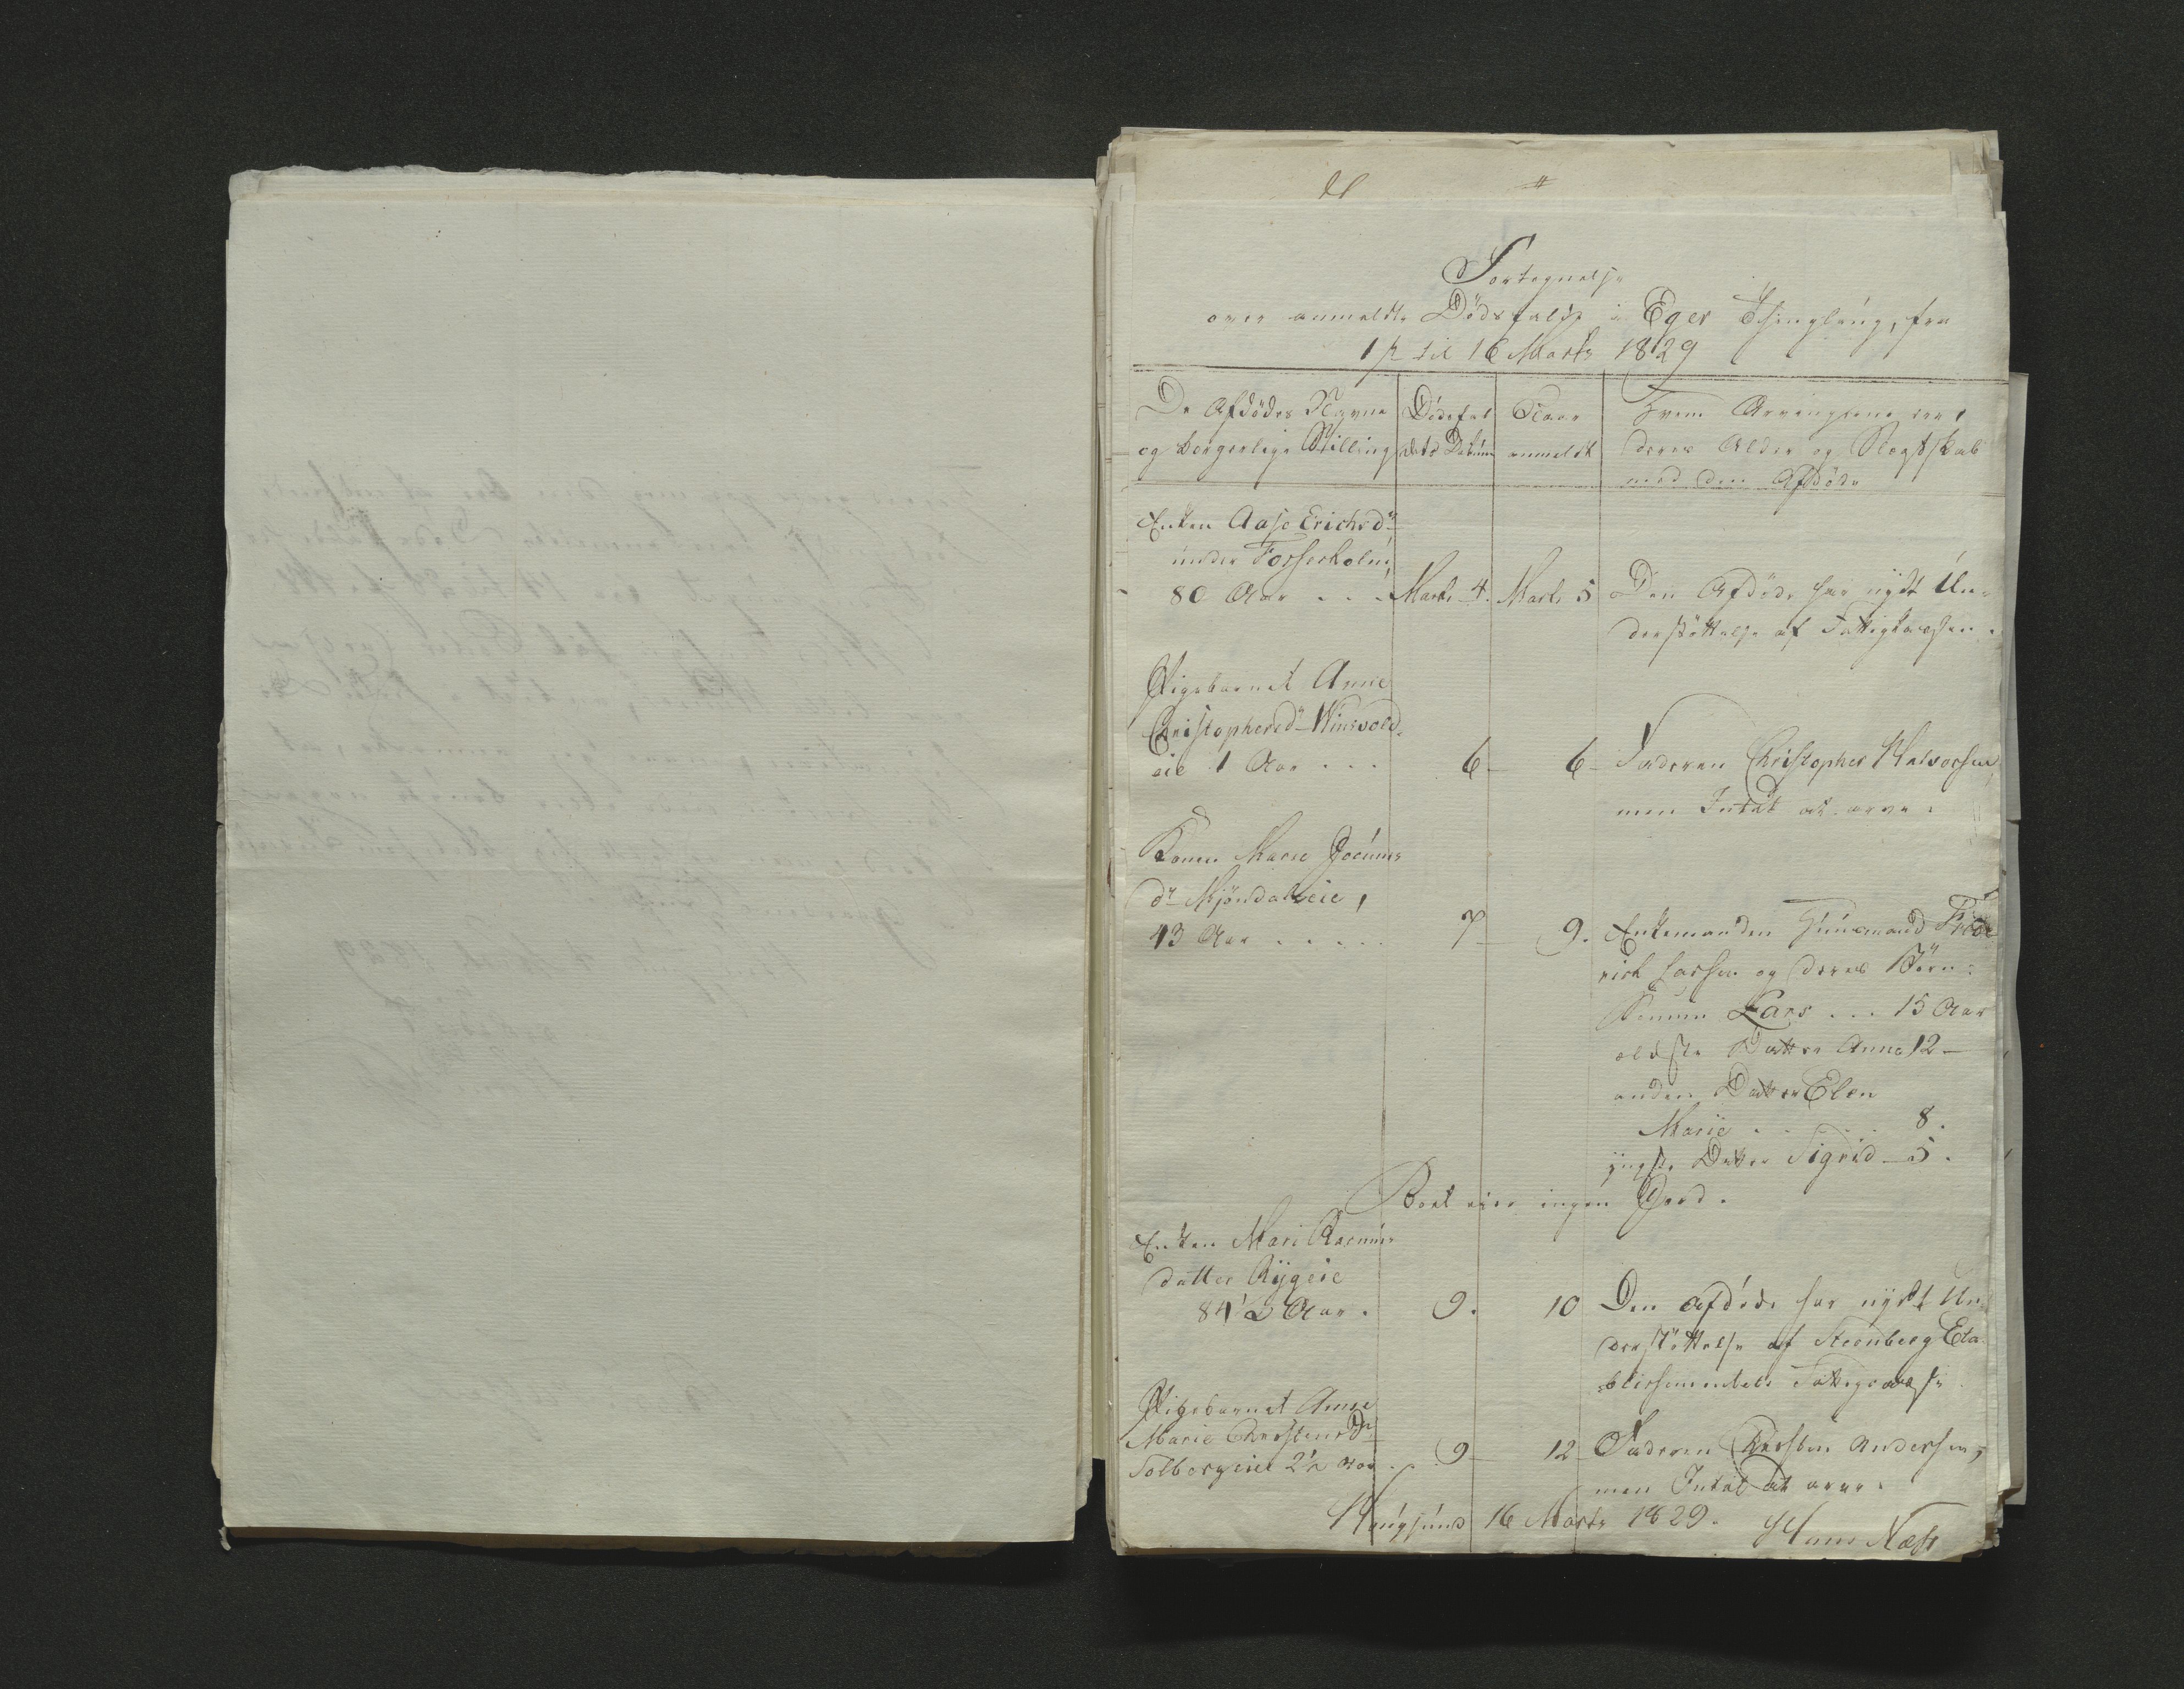 Fortegnelse
over anmeldte Dødsfalde i Eger Thinglaug, fra
1ste til 16 Marts 1829
De Afdødes Navne
og borgerlige Stilling
Dødsfal
dets Datum
Naar
anmeldt
Hvem Arvingerne ere,
deres Alder og Slægtskab
med den Afdøde
Enken Aase Erichsdr
under Fosserholm,
80 Aar . . . Marts 4. Marts 5 Den Afdøde har nydt Un-
derstøttelse af Fattigkassen.
Pigebarnet Anne
Christophersdr Winsvold-
eie 1 Aar . . . 6 - 6 - Faderen Christopher Halvorsen,
men Intet at arve.
Konen Marie Joeums
dr Mjøndaleie,
43 Aar . . . . . 7 - 9. Enkemanden Huusmand Fride-
rich Larsen og deres Børn:
Sønnen Lars . . . 15 Aar
ældste Datter Anne 12 -
anden Datter Elen
Marie . . . . . 8.
yngste Datter Sigrid - 5.
Boet eier ingen Jord.
Enken Mari Rasmus-
datter Rygeie
84 1/2 Aar. 9. 10 Den afdøde har nydt Un-
derstøttelse af Steenberg Eta-
blissementets Fattigvæsen
Pigebarnet Anne
Marie Christensdr
Solbergeiet 2 1/2 Aar . . . 9 - 12 - Faderen Christen Andersen,
men Intet at arve.
Haugsund 16 Marts 1829. Hans Næss